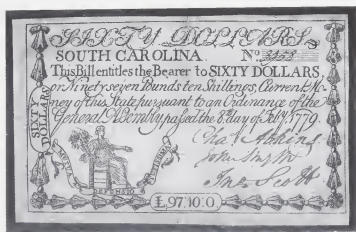 SIXTY DOLLARS
SOUTH CAROLINA. No.
This Bill entitles the Bearer to SIXTY DOLLARS,
or Ninety seven Pounds ten Shillings, Current Mo-
ney of this State pursuant to an Ordinance of the
General Assembly passed the 8 day of Feby. 1779.
SIXTY
DOLLARS
Chas. Atkins
John Smyth
Jno. Scott
DEFENSIO
£97:10:0